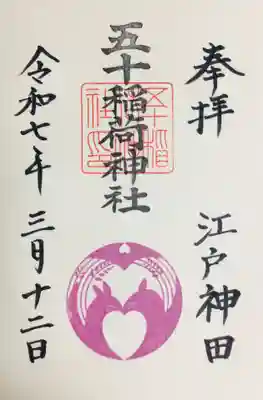 奉拝
江戸神田
五十稲荷神社
令和七年三月十二日